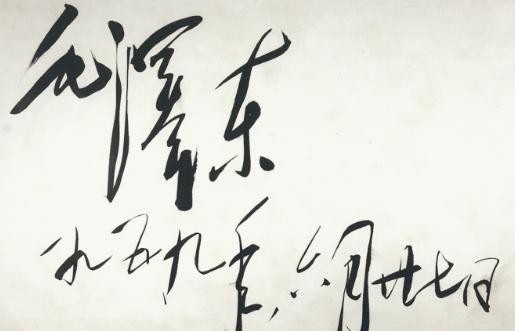 毛澤东
一九五九年六月廿七日